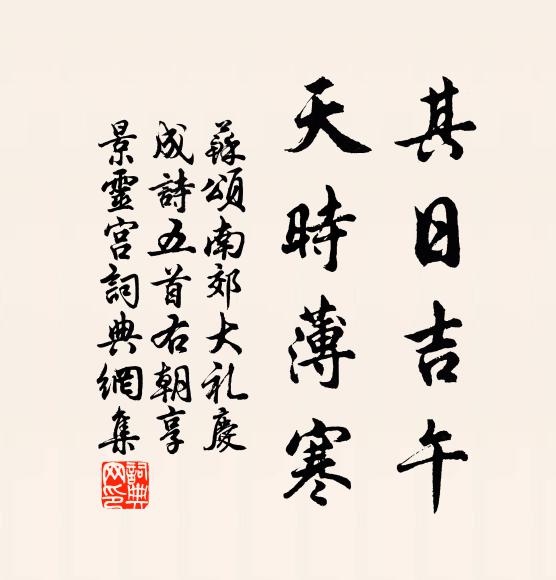 其日吉午
天時薄寒
蘇頌南郊大礼慶
成詩五首右朝享
景靈宮詞典網集
詞典网印